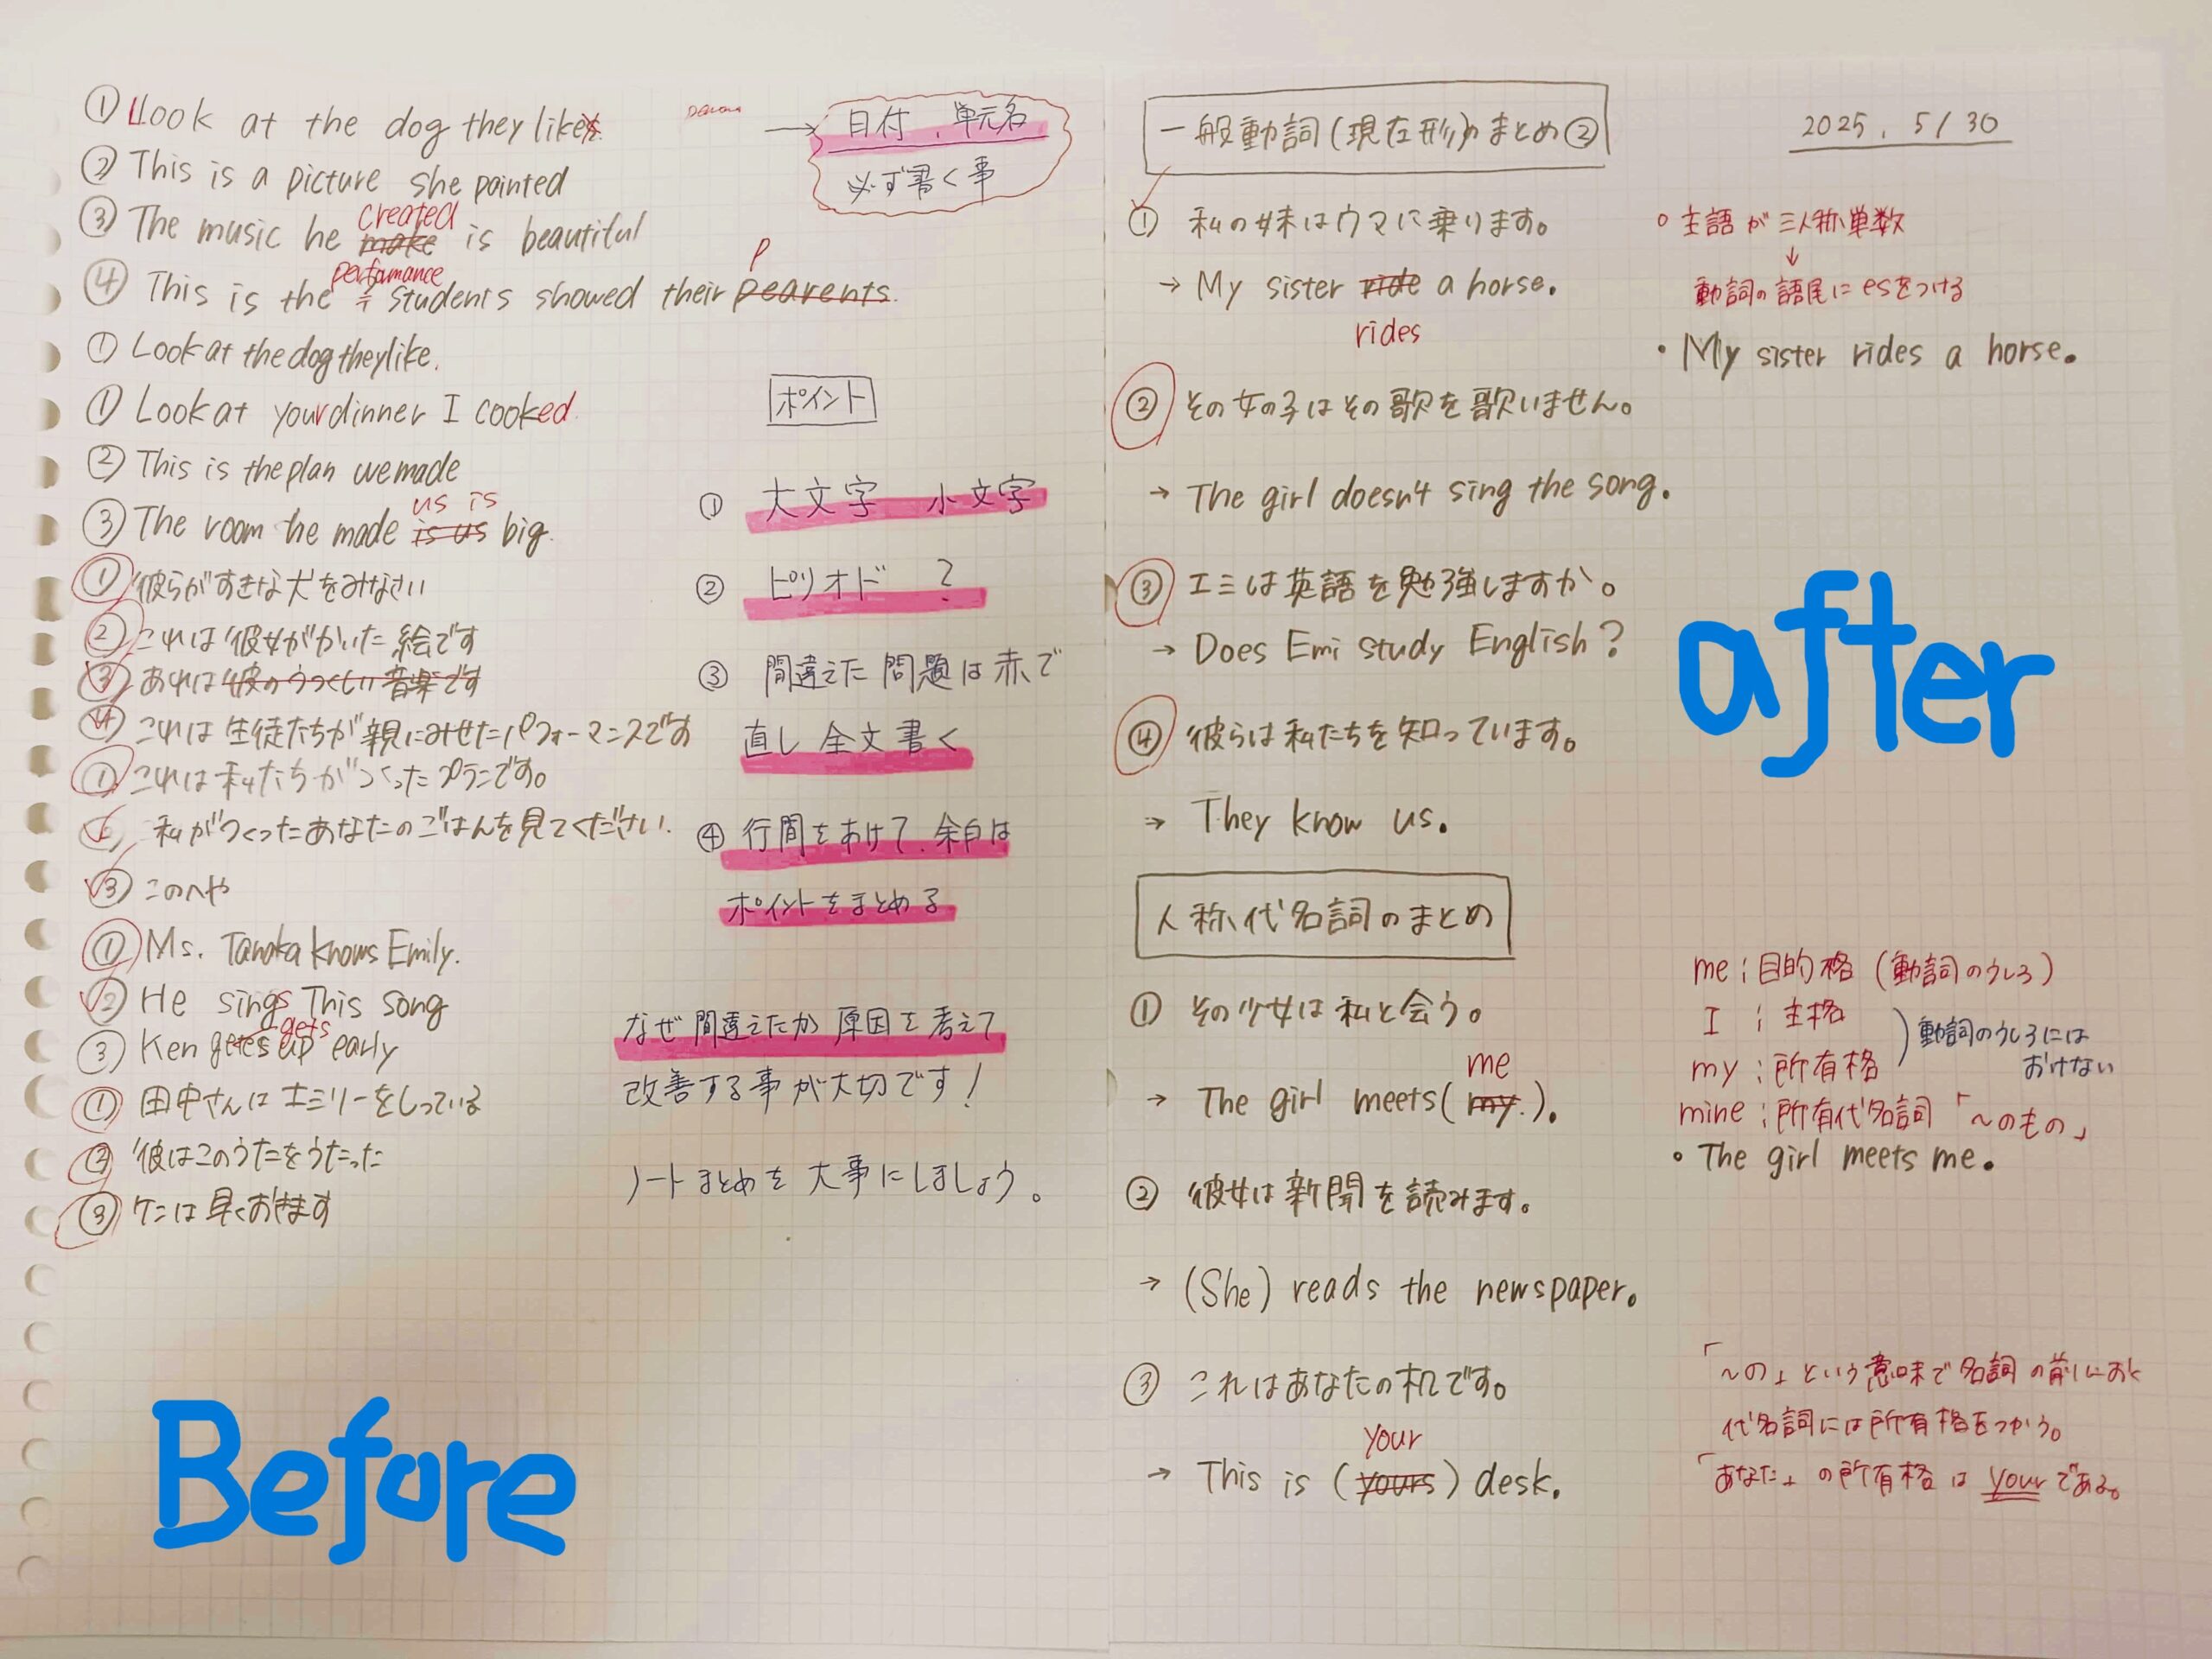 ① Look at the dog they likes.
② This is a picture she painted
created
③ The music he make is beautiful
performance
P
④ This is the students showed their pearents.
① Look at the dog they like.
① Look at your dinner I cooked.
② This is the plan we made
us is
③ The room he made is us big.
① 彼らがすきな犬をみなさい
② これは彼女がかいた絵です
③ あれは彼のうつくしい音楽です
④ これは生徒たちが親にみせたパフォーマンスです
① これは私たちがつくったプランです。
② 私がつくったあなたのごはんを見てください.
③ このへや
① Ms. Tanaka knows Emily.
② He sings This song
gets
③ Ken getes up early
① 田中さんはエミリーをしっている
② 彼はこのうたをうたった
③ ケンは早くおきます
Before
→ 日付、単元名
必ず書く事
ポイント
① 大文字 小文字
② ピリオド ?
③ 間違えた問題は赤で
直し 全文書く
④ 行間をあけて、余白は
ポイントをまとめる
なぜ間違えたか 原因を考えて
改善する事が大切です!
ノートまとめを大事にしましょう。
一般動詞(現在形)のまとめ②
2025. 5/30
① 私の妹はウマに乗ります。
→ My sister ride a horse.
rides
② その女の子はその歌を歌いません。
→ The girl doesn't sing the song.
③ エミは英語を勉強しますか。
→ Does Emi study English?
④ 彼らは私たちを知っています。
→ They know us.
○ 主語が三人称単数
↓
動詞の語尾にesをつける
・My sister rides a horse.
after
人称代名詞のまとめ
① その少女は私と会う。
me
→ The girl meets (my.).
② 彼女は新聞を読みます。
→ (She) reads the newspaper.
③ これはあなたの机です。
your
→ This is (yours) desk.
me : 目的格 (動詞のうしろ)
I : 主格
my : 所有格
動詞のうしろには
おけない
mine : 所有代名詞「～のもの」
・The girl meets me.
「～の」という意味で名詞の前におく
代名詞には所有格をつかう。
「あなた」の所有格は your である。